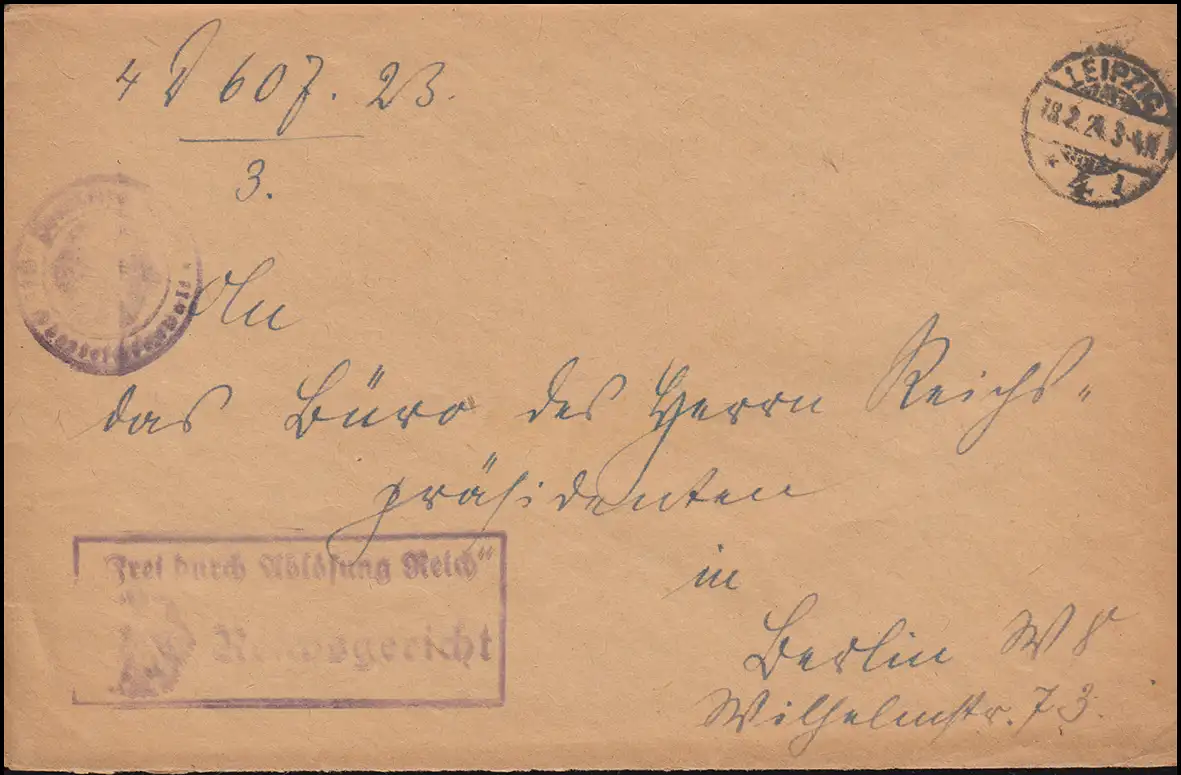 4 D 607. 23.
3.
LEIPZIG
18.2.24. 3-4 N.
* 4. 1
An
das Büro des Herrn Reichs-
präsidenten
in
Berlin W 8
Wilhelmstr. 73.
Frei durch Ablösung Reich"
Reichsgericht